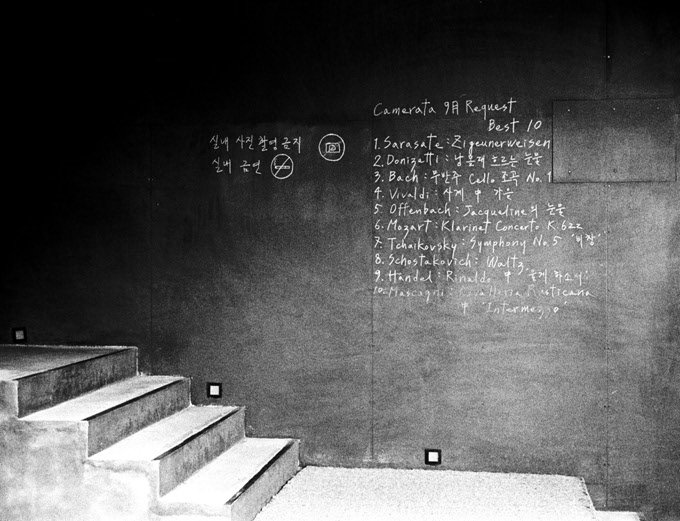 실내 사진 촬영 금지
실내 금연
Camerata 9月 Request
Best 10
1. Sarasate : Zigeunerweisen
2. Donizetti : 남몰래 흐르는 눈물
3. Bach : 무반주 Cello 조곡 No. 1
4. Vivaldi : 사계 中 가을
5. Offenbach : Jacqueline의 눈물
6. Mozart : Klarinet Concerto K.622
7. Tchaikovsky : Symphony No.5 '비창'
8. Schostakovich : Waltz
9. Händel : Rinaldo 中 '울게 하소서'
10. Mascagni : Cavalleria Rusticana
中 'Intermezzo'